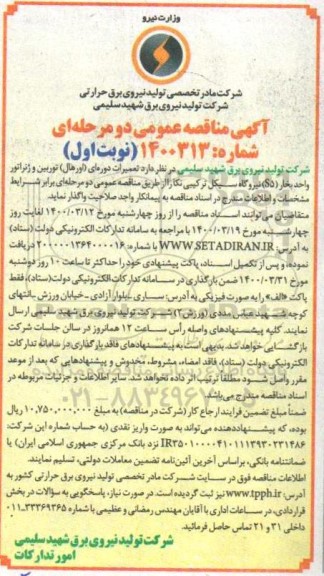 وزارت نیرو
شرکت مادر تخصصی تولید نیروی برق حرارتی
شرکت تولید نیروی برق شهید سلیمی
آگهی مناقصه عمومی دو مرحله‌ای
شماره: ۱۴۰۰۳۱۳ (نوبت اول)
شرکت تولید نیروی برق شهید سلیمی در نظر دارد تعمیرات دوره‌ای (اورهال) توربین و ژنراتور
واحد بخار (S5) نیروگاه سیکل ترکیبی نکا را از طریق مناقصه عمومی دو مرحله‌ای برابر شرایط
مشخصات و اطلاعات مندرج در اسناد مناقصه به پیمانکار واجد صلاحیت واگذار نماید.
متقاضیان می‌توانند اسناد مناقصه را از روز چهارشنبه مورخ ۱۴۰۰/۰۳/۱۲ لغایت روز
چهارشنبه مورخ ۱۴۰۰/۰۳/۱۹ با مراجعه به سامانه تدارکات الکترونیکی دولت (ستاد)
به آدرس: WWW.SETADIRAN.IR با شماره: ۲۰۰۰۰۰۱۳۶۴۰۰۰۰۱۶ دریافت
نموده، و پس از تکمیل اسناد، پاکت پیشنهادی خود را حداکثر تا ساعت ۱۰ روز دوشنبه
مورخ ۱۴۰۰/۰۳/۳۱ ضمن بارگذاری در سامانه تدارکات الکترونیکی دولت (ستاد)، فقط
پاکت «الف» را به صورت فیزیکی به آدرس: ساری، بلوار آزادی ـ خیابان ورزش ـ انتهای
کوچه شهید عباس مددی (ورزش ۲) ـ شرکت تولید نیروی برق شهید سلیمی ارسال
نمایند. کلیه پیشنهادهای واصله رأس ساعت ۱۲ همانروز در سالن جلسات شرکت
بازگشایی خواهد شد. بدیهی است به پیشنهادهای فاقد بارگذاری در سامانه تدارکات
الکترونیکی دولت (ستاد)، فاقد امضاء، مشروط، مخدوش و پیشنهادهایی که بعد از موعد
مقرر واصل شود مطلقاً ترتیب اثر داده نخواهد شد. سایر اطلاعات و جزئیات مربوطه در
اسناد مناقصه مندرج می‌باشد.
ضمناً مبلغ تضمین فرایند ارجاع کار (شرکت در مناقصه) به مبلغ ۱۰,۷۵۰,۰۰۰,۰۰۰ ریال
بوده، که پیشنهاددهنده می‌تواند به صورت واریز نقدی (به حساب شماره این شرکت:
IR۳۵۰۱۰۰۰۰۴۱۰۱۱۱۳۹۳۰۲۳۱۴۸۶ نزد بانک مرکزی جمهوری اسلامی ایران) یا
ضمانتنامه بانکی، براساس آخرین آئین‌نامه تضمین معاملات دولتی، تسلیم نمایند.
اطلاعات مناقصه فوق در سایت شرکت مادر تخصصی تولید نیروی برق حرارتی کشور به
آدرس: www.tpph.ir نیز ثبت گردیده است. در صورت نیاز، پاسخگویی به سؤالات در بخش
قراردادی، در ساعات اداری با آقایان مهندس رمضانی و عظیمی با شماره ۳۳۳۶۹۳۶۵-۰۱۱
داخلی ۳۱ و ۲۱ تماس حاصل فرمائید.
شرکت تولید نیروی برق شهید سلیمی
امور تدارکات